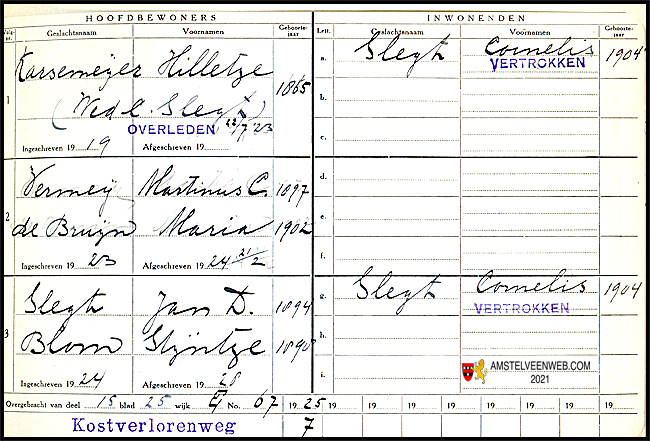 HOOFDBEWONERS INWONENDEN
Volg-nr. Geslachtsnaam Voornamen Geboorte-jaar Lett. Geslachtsnaam Voornamen Geboorte-jaar
Karsemeijer Hilletje 1865 a. Slegt Cornelis 1904
VERTROKKEN
1
b.
(Wed L. Slegt)
OVERLEDEN 22/7 '23
c.
Ingeschreven 19 19 Afgeschreven 19
d.
Vermeij Martinus C. 1897
e.
2
de Bruijn Maria 1902
f.
Ingeschreven 19 23 Afgeschreven 19 24 21/2
g. Slegt Cornelis 1904
Slegt Jan D. 1894
VERTROKKEN
3
h.
Blom Stijntje 1898
i.
AMSTELVEENWEB.COM
2021
Ingeschreven 19 24 Afgeschreven 19 28
Overgebracht van deel 15 blad 25 wijk No. 67 19 25 19 19 19 19 19 19 19
Kostverlorenweg 7